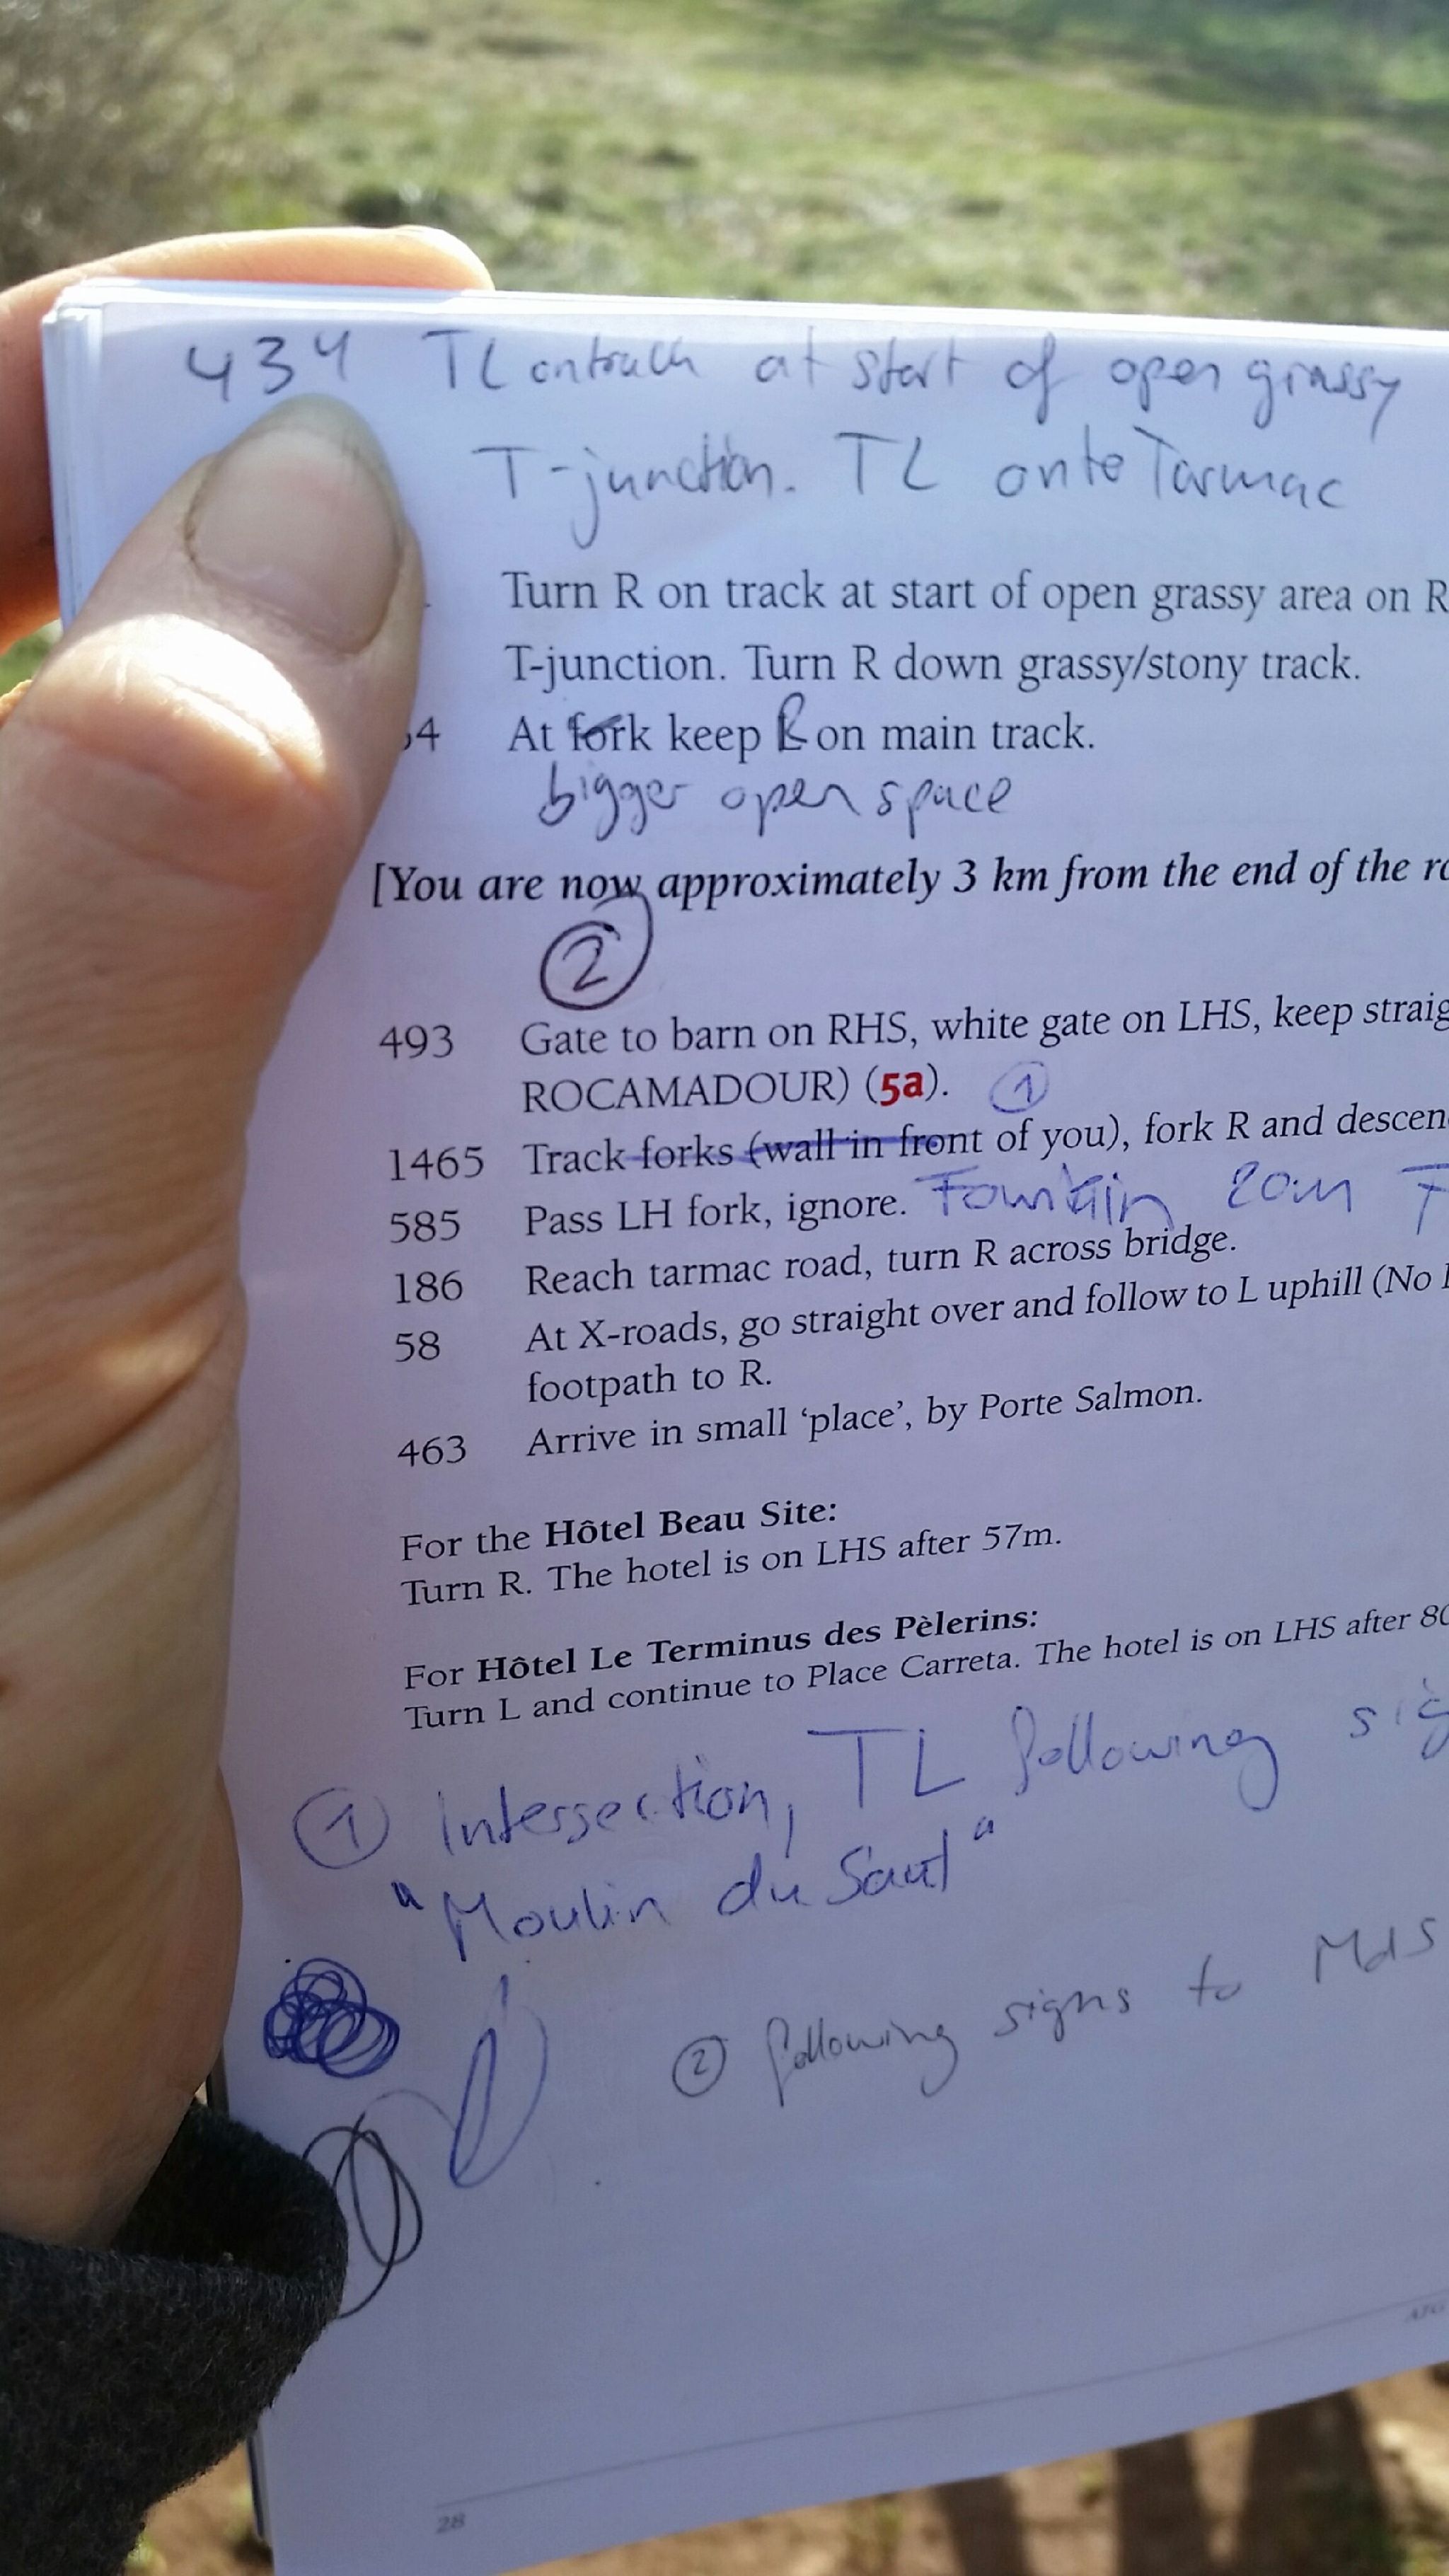 434 TL on track at start of open grassy
T-junction. TL onto Tarmac
Turn R on track at start of open grassy area on R
T-junction. Turn R down grassy/stony track.
4 At fork keep R on main track.
bigger open space
[You are now approximately 3 km from the end of the ro
2
493 Gate to barn on RHS, white gate on LHS, keep straig
ROCAMADOUR) (5a). 1
1465 Track forks (wall in front of you), fork R and descen
585 Pass LH fork, ignore. Fountain 20m T
186 Reach tarmac road, turn R across bridge.
58 At X-roads, go straight over and follow to L uphill (No
footpath to R.
463 Arrive in small ‘place’, by Porte Salmon.
For the Hôtel Beau Site:
Turn R. The hotel is on LHS after 57m.
For Hôtel Le Terminus des Pèlerins:
Turn L and continue to Place Carreta. The hotel is on LHS after 80
1 Intersection, TL following sig
"Moulin du Saut"
2 following signs to MdS
28